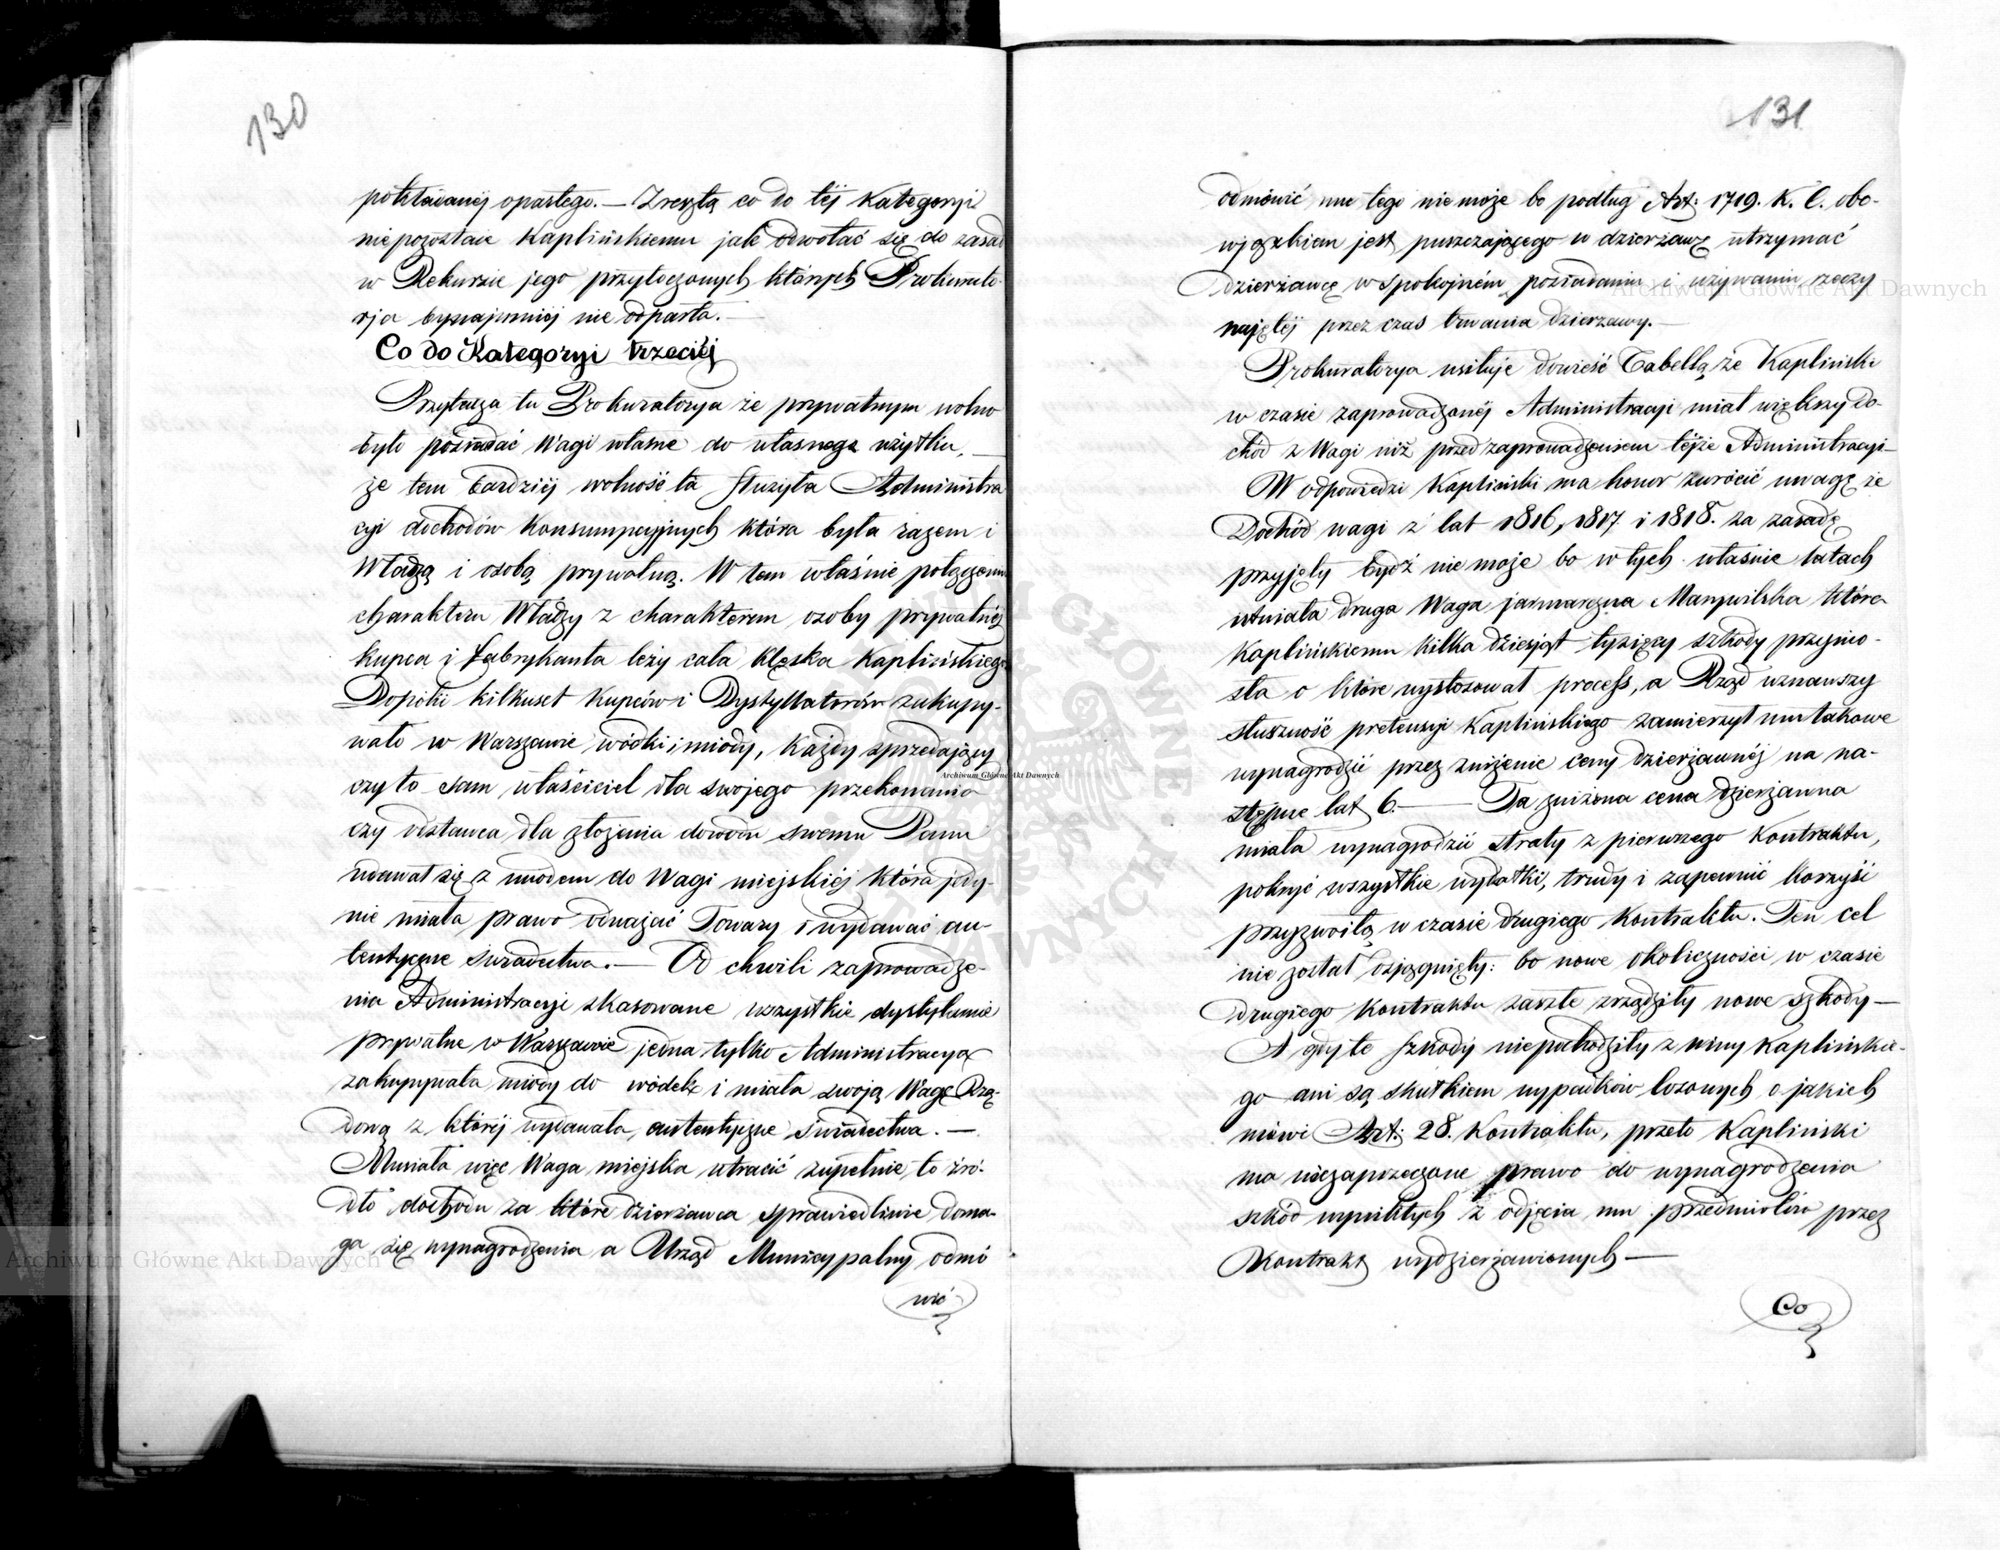 130
potrzebowanéj opartego. — Zresztą co do téj Kategoryi
niepozostaie Kaplińskiemu jak odwołać się do zasad
w Rekursie jego przytoczonych których Prokurato-
rja bynajmniéj nie odparła. —
Co do Kategoryi trzeciéj
Przytacza tu Prokuratorya że prywatnym wolno
było posiadać Wagi własne do własnego użytku, —
że tem bardziéj wolność ta służyła Administra
cyi dochodów Konsumpcyjnych która była razem i
Władzą i osobą prywatną. W tem właśnie połączeniu
charakteru Władzy z charakterem osoby prywatnéj
kupca i fabrykanta leży cała klęska Kaplińskiego
Dopóki kilkuset Kupców i Dystyllatorów zakupy-
wało w Warszawie wódki i miody, każdy sprzedający
czy to sam właściciel dla swojego przekonania
czy dostawca dla złożenia dowodu swemu Panu
udawał się z miodem do Wagi miejskiéj która jedy-
nie miała prawo odważać Towary i wydawać au-
tentyczne świadectwa. — Od chwili zaprowadze-
nia Administracyi skasowane wszystkie dystylarnie
prywatne w Warszawie jedna tylko Administracya
zakupywała miody do wódek i miała swoją Wagę Rzą-
dową z któréj wydawała autentyczne świadectwa. —
Musiała więc Waga miejska utracić zupełnie to źró-
dło dochodu za które dzierżawca sprawiedliwie doma-
ga się wynagrodzenia a Urząd Municypalny odmó
wić
131
odmówić mu tego nie może bo podług Art: 1719. K. C. obo-
wiązkiem jest puszczającego w dzierżawę utrzymać
dzierżawcę w spokojném posiadaniu i używaniu rzeczy
najętéj przez czas trwania dzierżawy. —
Prokuratorya usiłuje dowieść Tabellą że Kapliński
w czasie zaprowadzonéj Administracyi miał większy Do-
chód z Wagi niż przed zaprowadzeniem téjże Administracyi —
W odpowiedzi Kapliński ma honor zwrócić uwagę że
Dochód wagi z lat 1816, 1817 i 1818. za zasadę
przyjęty bydź nie może bo w tych właśnie latach
istniała druga Waga jarmarczna Marywilska która
Kaplińskiemu kilka dziesiąt tysięcy szkody przynio-
sła o które wystosował process, a Rząd uznawszy
słuszność pretensyi Kaplińskiego zamierzył mu takowe
wynagrodzić przez zniżenie ceny dzierżawnéj na na-
stępne lat 6. — Ta zniżona cena dzierżawna
miała wynagrodzić straty z pierwszego Kontraktu,
pokryć wszystkie wydatki, trudy i zapewnić korzyść
przyzwoitą w czasie drugiego Kontraktu. Ten cel
nie został osiągnięty: bo nowe okoliczności w czasie
drugiego Kontraktu zaszłe zrządziły nowe szkody —
A gdy te szkody niepochodziły z winy Kaplińskie-
go ani są skutkiem wypadków losowych o jakich
mówi Art: 28. Kontraktu, przeto Kapliński
ma niezaprzeczone prawo do wynagrodzenia
szkód wynikłych z odjęcia mu przedmiotów przez
Kontrakt wydzierżawionych —
Co
Archiwum Główne Akt Dawnych
Archiwum Główne Akt Dawnych
Archiwum Główne Akt Dawnych